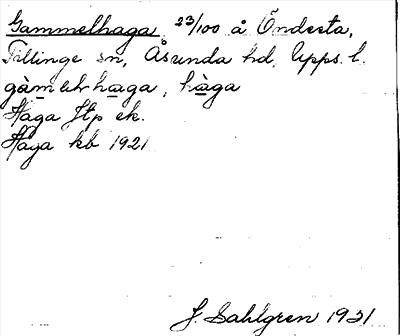 Gammelhaga 23/100 å Öndersta,
Tillinge sn, Åsunda hd, Upps. l.
hàga
Haga Jtp ek.
Haga kb 1921
J. Sahlgren 1931